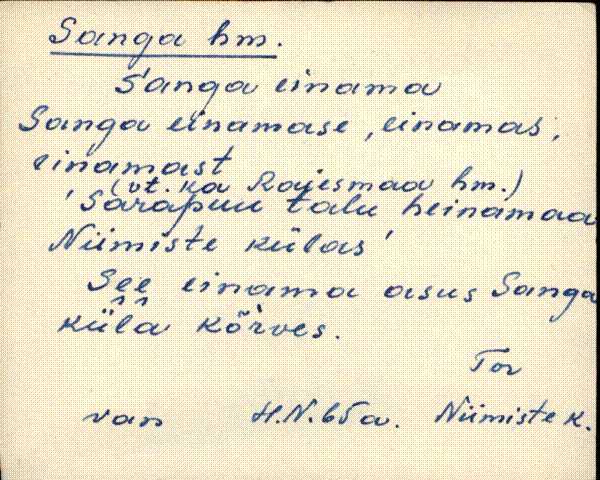 Sanga hm.
S'anga einama
Sanga einamase, einamas,
einamast
(vt. ka Rajesmaa hm.)
'Sarapuu talu heinamaa
Niimiste külas'
See einama asus Sanga
küla kõrves.
Tor
van H.N. 65a. Niimiste k.